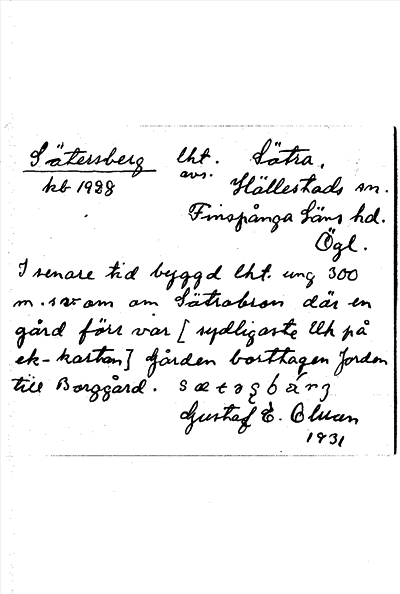 Sätersberg lht. Sätra,
avs.
kb 1928 Hällestads sn.
Finspånga läns hd.
Ögl.
I senare tid byggd lht. ung 300
m. sv om om Sätrabron där en
gård förr var [ sydligaste lth på
ek-kartan] Gården borttagen Jorden
till Borggård.
Gustaf E.
1931